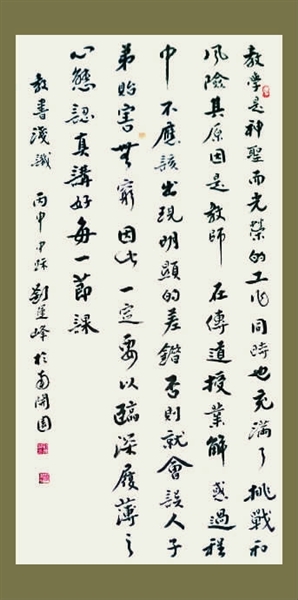 教学是神聖而光榮的工作同時也充滿了挑戰和
風險其原因是教師在傳道授業解惑過程
中不應該出現明顯的差錯否則就會誤人子
弟貽害無窮因此一定要以臨深履薄之
心態認真講好每一節課
教書淺識 丙申中秋 劉 峰於南開園